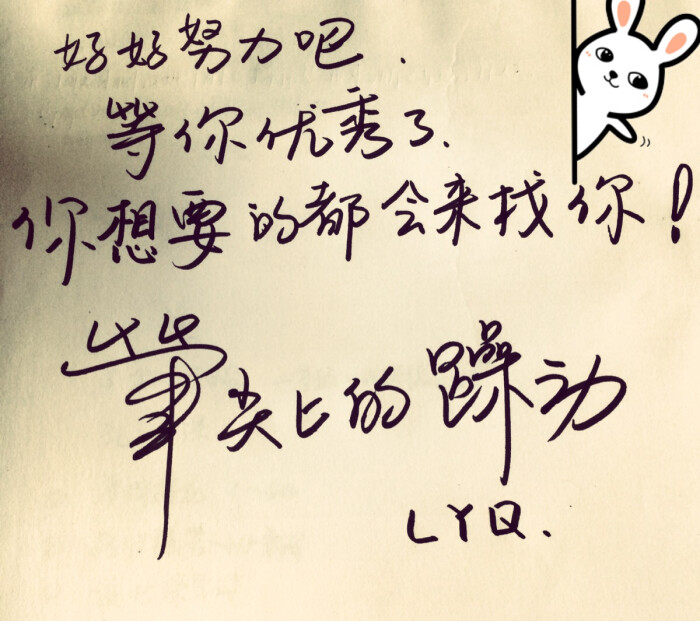 好好努力吧.
等你优秀了.
你想要的都会来找你！
笔尖上的躁动
LYQ.